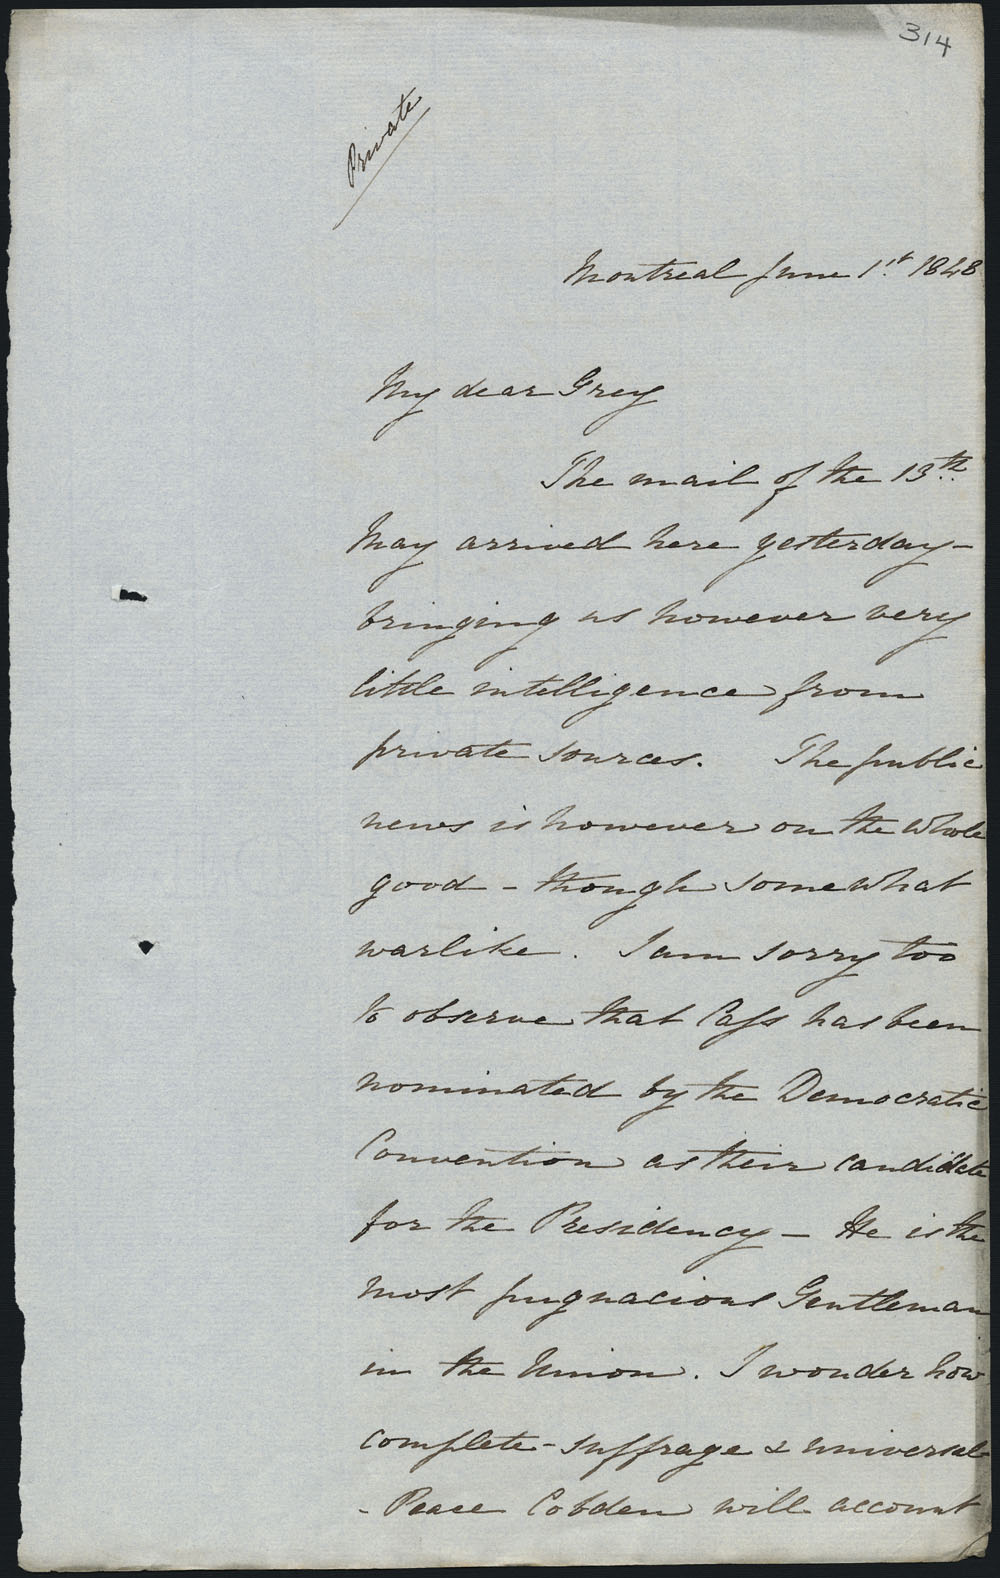 314
Private
Montreal June 1st 1848
My dear Grey
The mail of the 13th
May arrived here yesterday -
bringing us however very
little intelligence from
private sources. The public
news is however on the whole
good - though somewhat
warlike. I am sorry too
to observe that Cass has been
nominated by the Democratic
Convention as their candidate
for the Presidency - He is the
most pugnacious Gentleman
in the Union. I wonder how
complete-suffrage & universal
-Peace Cobden will account